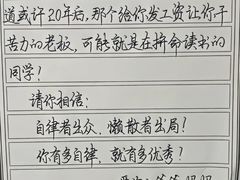 道或许20年后,那个给你发工资让你干
苦力的老板,可能就是在拼命读书的
同学!
请你相信:
自律者出众,懒散者出局!
你有多自律,就有多优秀?